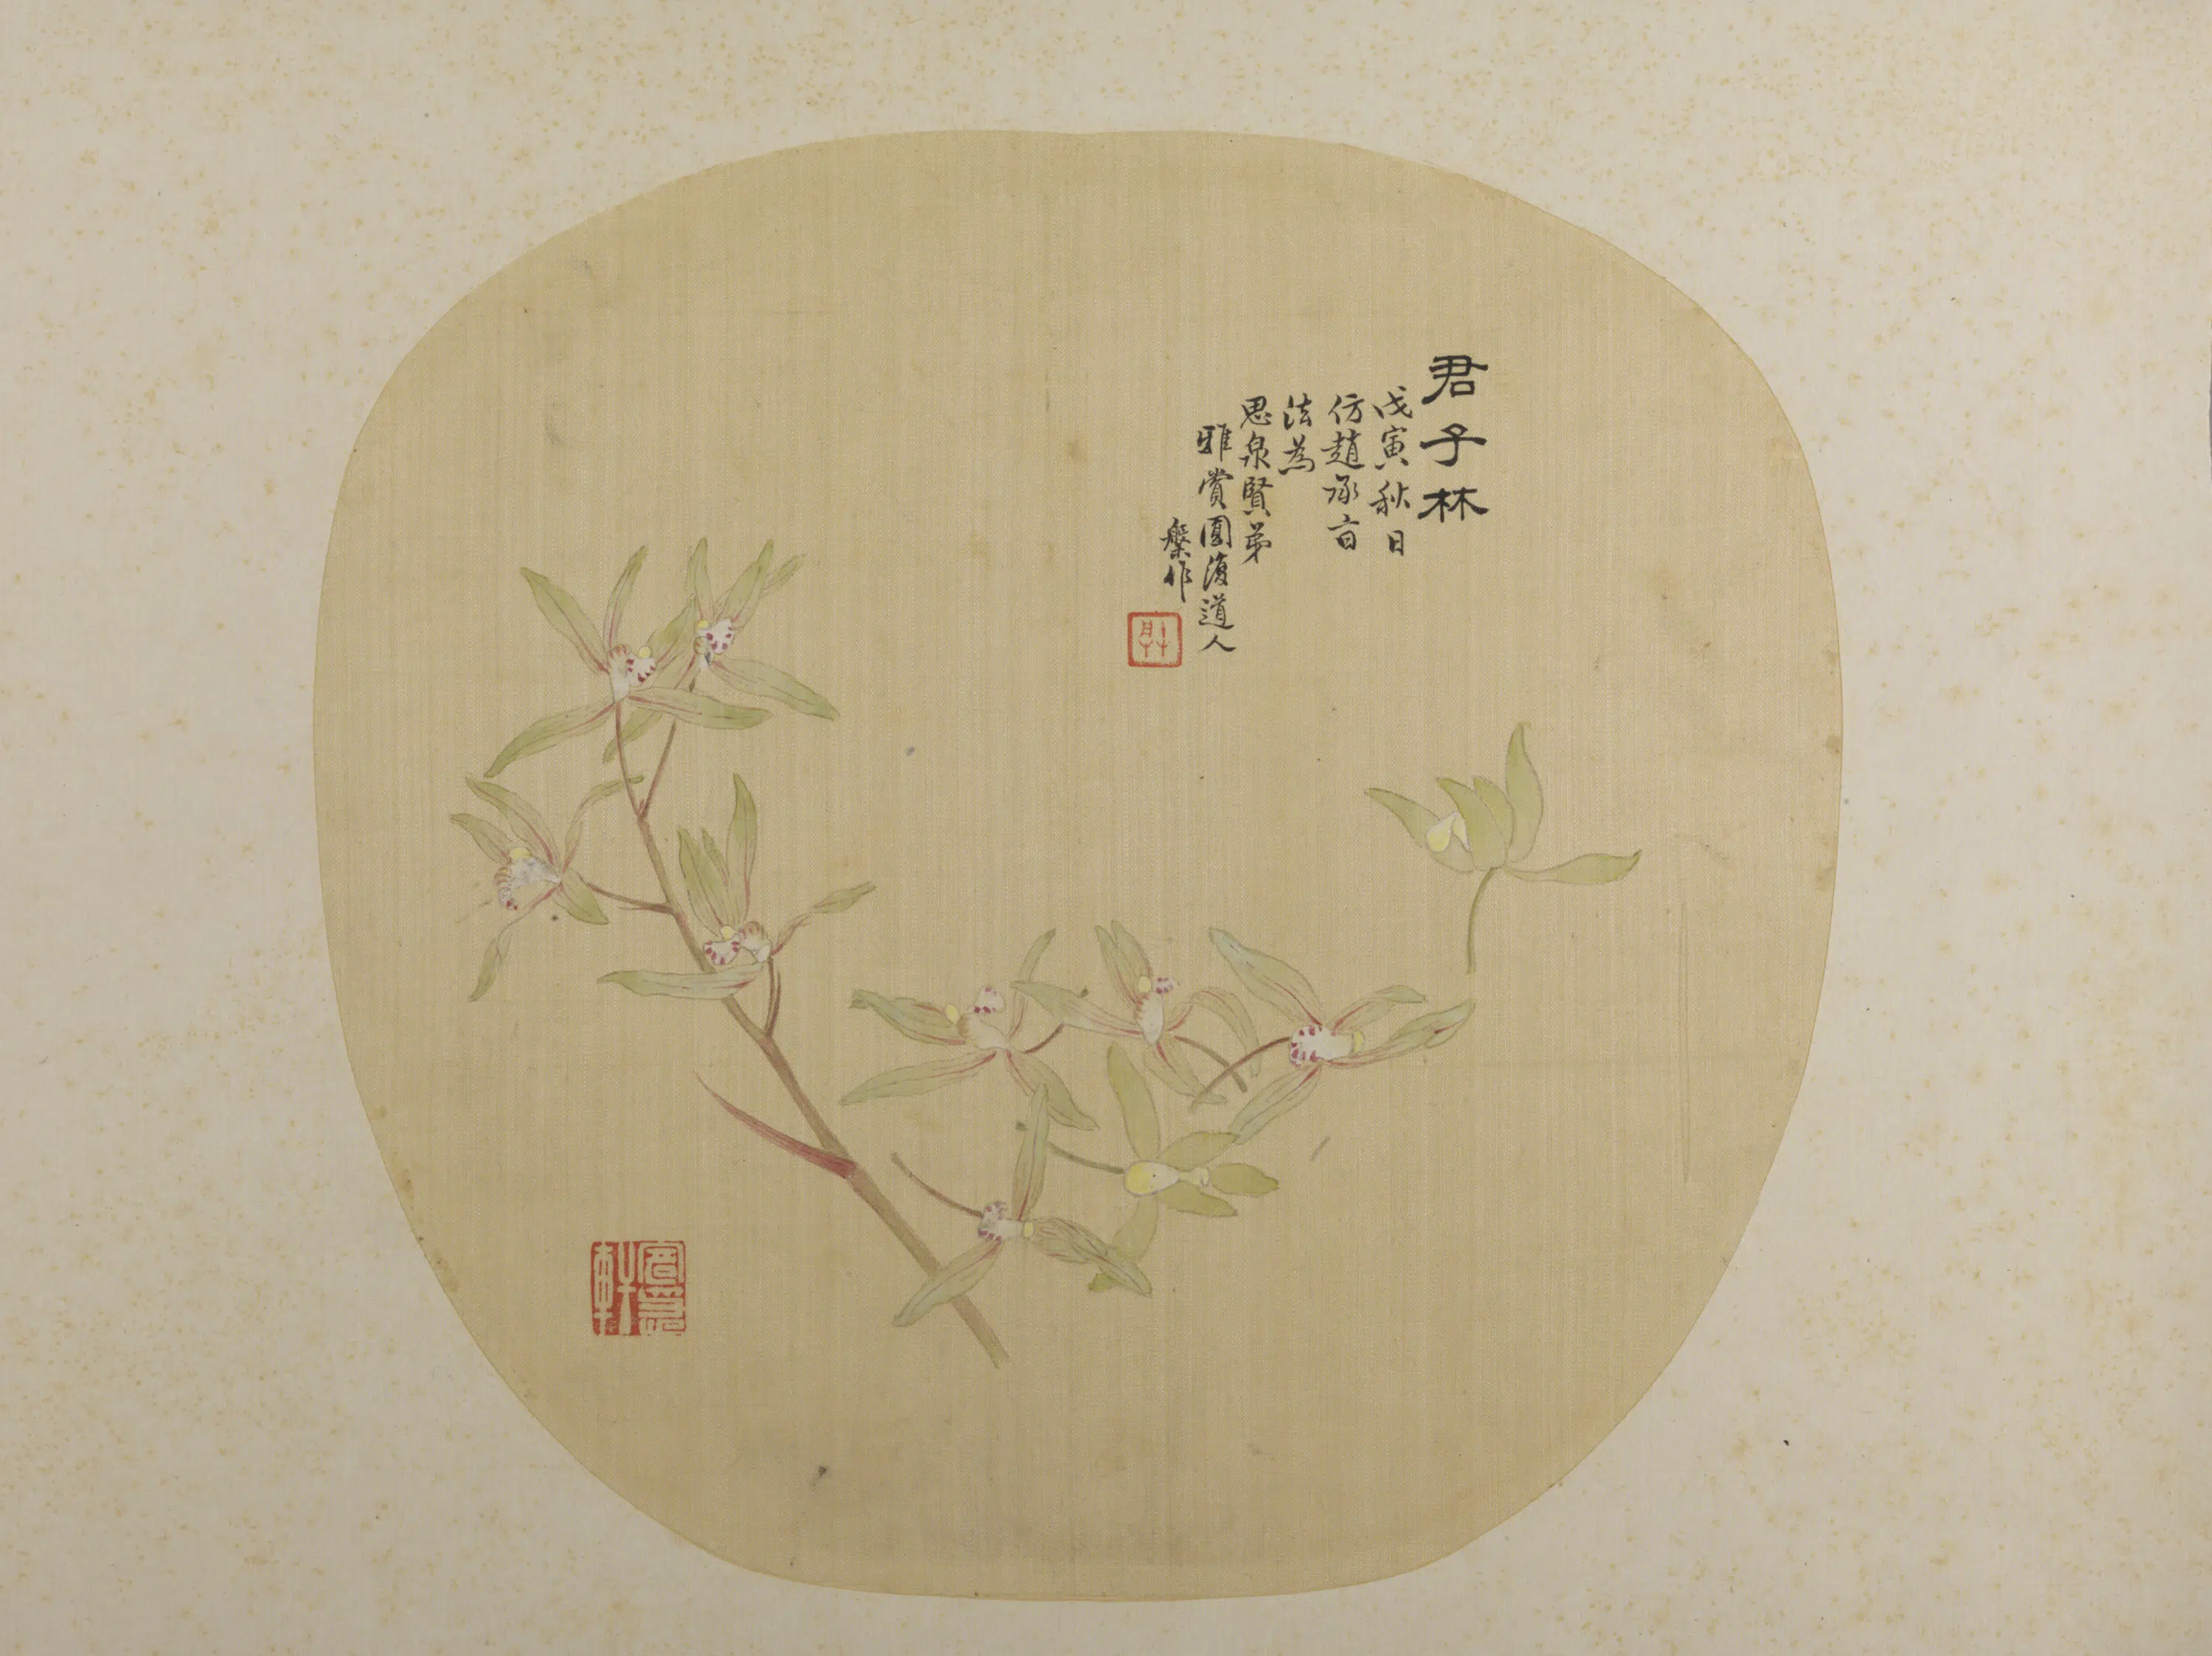 君子林
戊寅秋日
仿趙承旨
法為
思泉賢弟
雅賞圓復道人
槃作